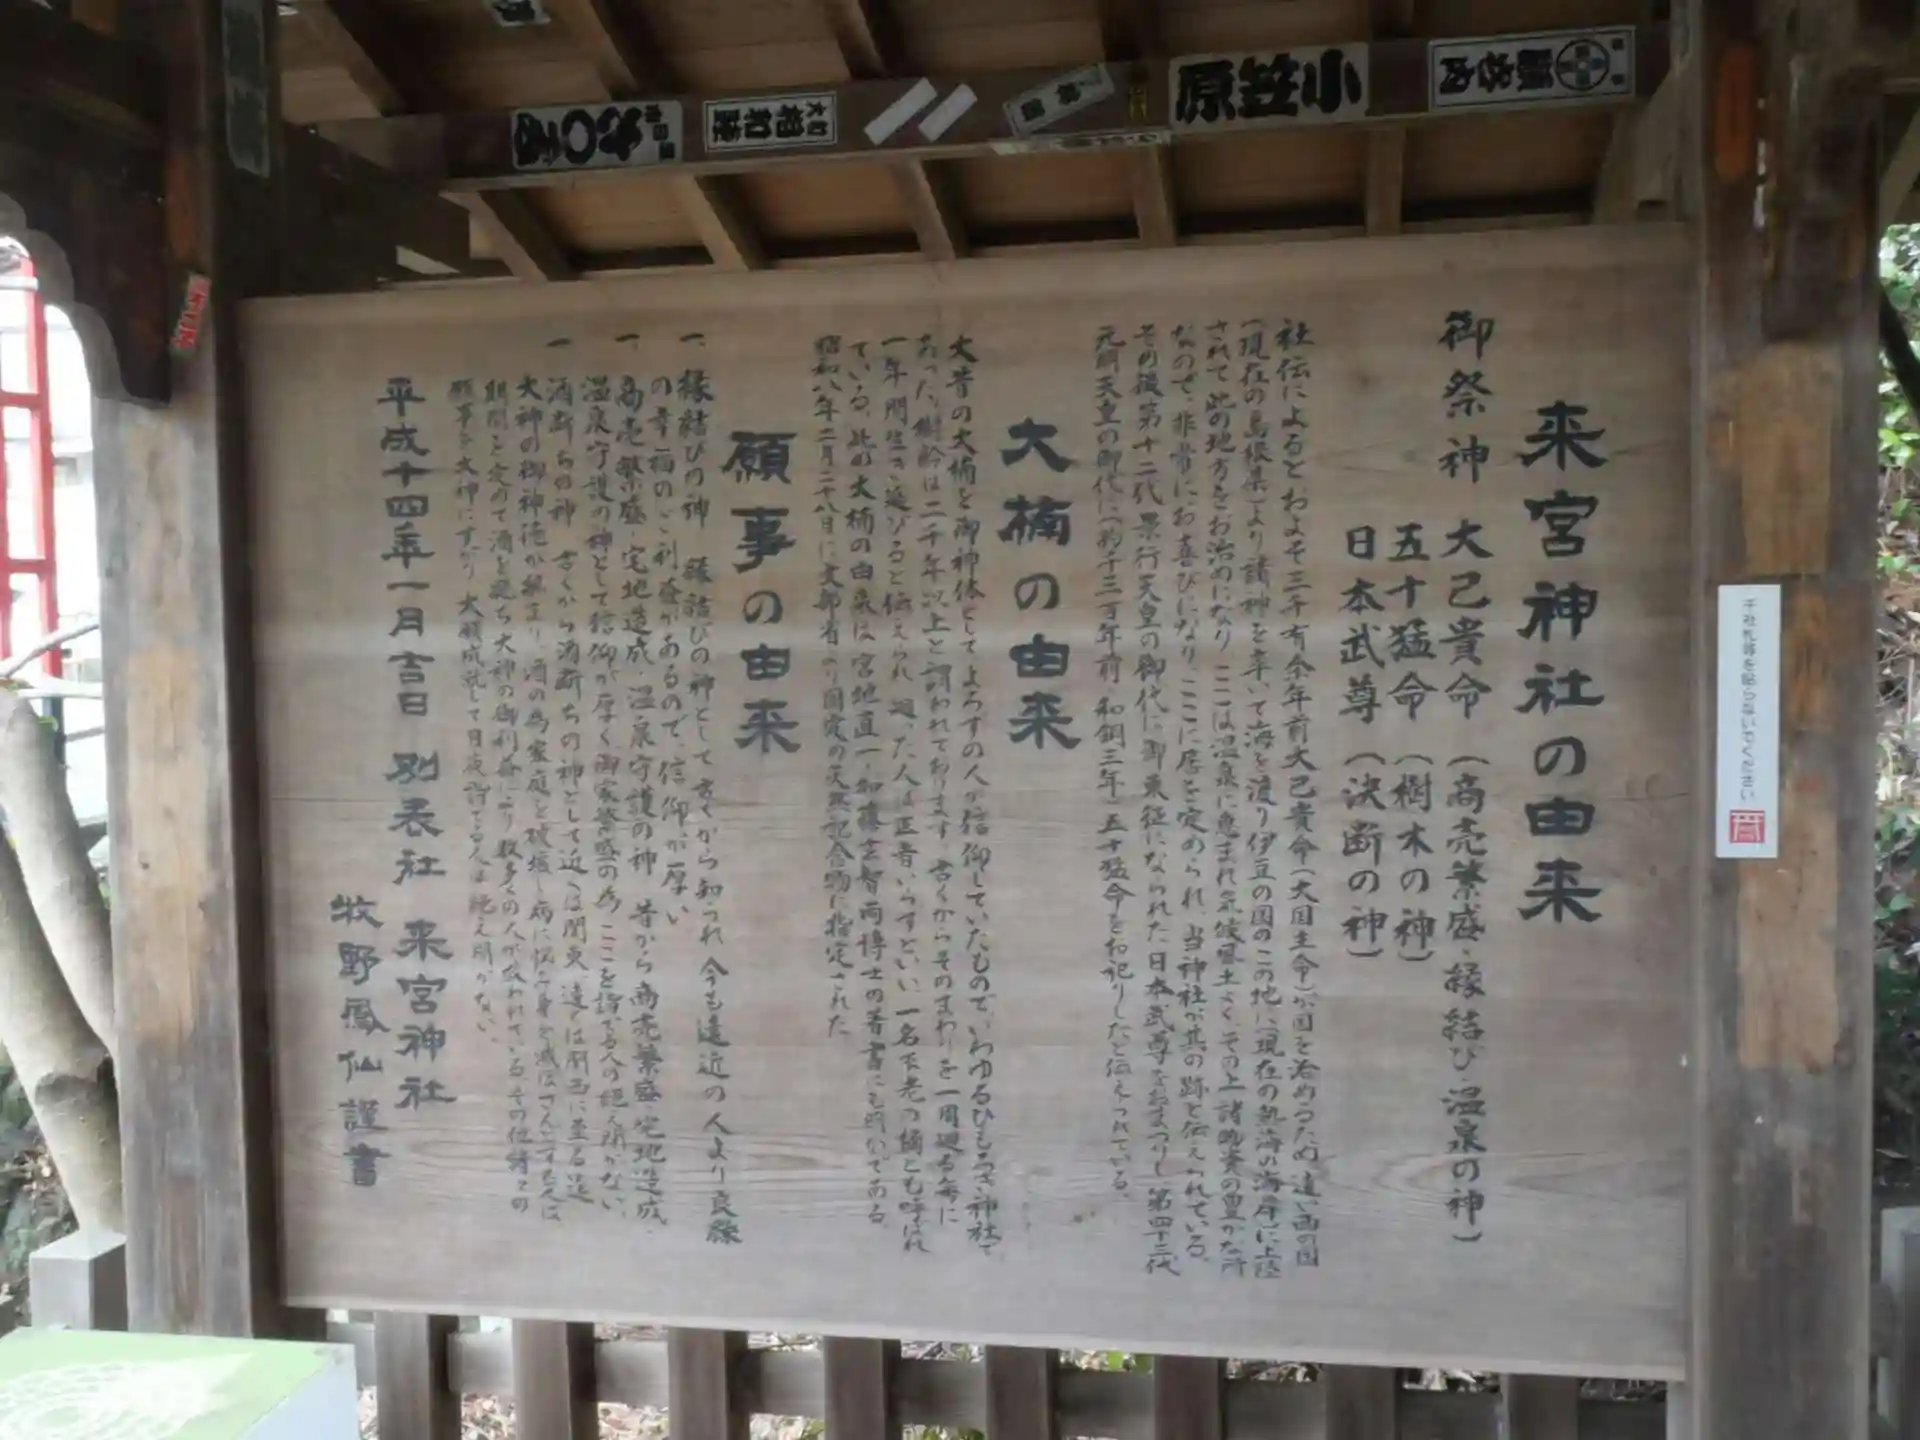 来宮神社の由来
御祭神 大己貴命(商売繁盛・縁結び・温泉の神)
五十猛命(樹木の神)
日本武尊(決断の神)
社伝によると、およそ三千有余年前大己貴命(大国主命)が国を治めるため遠い西の国
(現在の島根県)より諸神を率いて海を渡り伊豆の国のこの地に(現在の熱海の海岸に上陸
されて此の地方をお治めになり、ここは温泉に恵まれ気候風土よく、その上諸物資の豊かな所
なので、非常にお喜びになり、ここに居を定められ、当神社が其の跡と伝えられている。
その後第十二代景行天皇の御代に御東征になられた日本武尊をおまつりし第四十三代
元明天皇の御代に(約千三百年前・和銅三年)五十猛命をお祀りしたと伝えられている。
大楠の由来
大昔の大楠を御神体としてよろずの人が信仰していたもので、いわゆるひもろぎ神社で
あった、樹齢は二千年以上と謂われております、古くからそのまわりを一周廻る毎に
一年間生き延びると伝えられ、廻った人は医者いらずといい、一名不老の楠とも呼ばれ
ている、此の大楠の由来は宮地直一・加藤玄智両博士の著書にも明かである
昭和八年二月二十八日に文部省より国定の天然記念物に指定された
願事の由来
一、縁結びの神 縁結びの神として古くから知られ今も遠近の人より良縁
の幸福のご利益があるので、信仰が厚い
一、商売繁盛・宅地造成・温泉守護の神 昔から商売繁盛・宅地造成・
温泉守護の神として信仰が厚く、御家繁盛の為、ここを詣でる人の絶え間がない、
一 酒断ちの神 古くから酒断ちの神として近くは関東、遠くは関西に至る迄
大神の御神徳が極まり、酒の為家庭を破壊し病に悩み身を滅ぼさんとする人は
期間を定めて酒を絶ち大神の御利益により数多くの人が救われている、その他諸々の
願事を大神にすがり大願成就して日夜詣でる人は絶え間がない
平成十四年一月吉日 別表社 来宮神社
牧野鳳仙謹書
小笠原
大和 相和睦
千社札等を貼らないでください